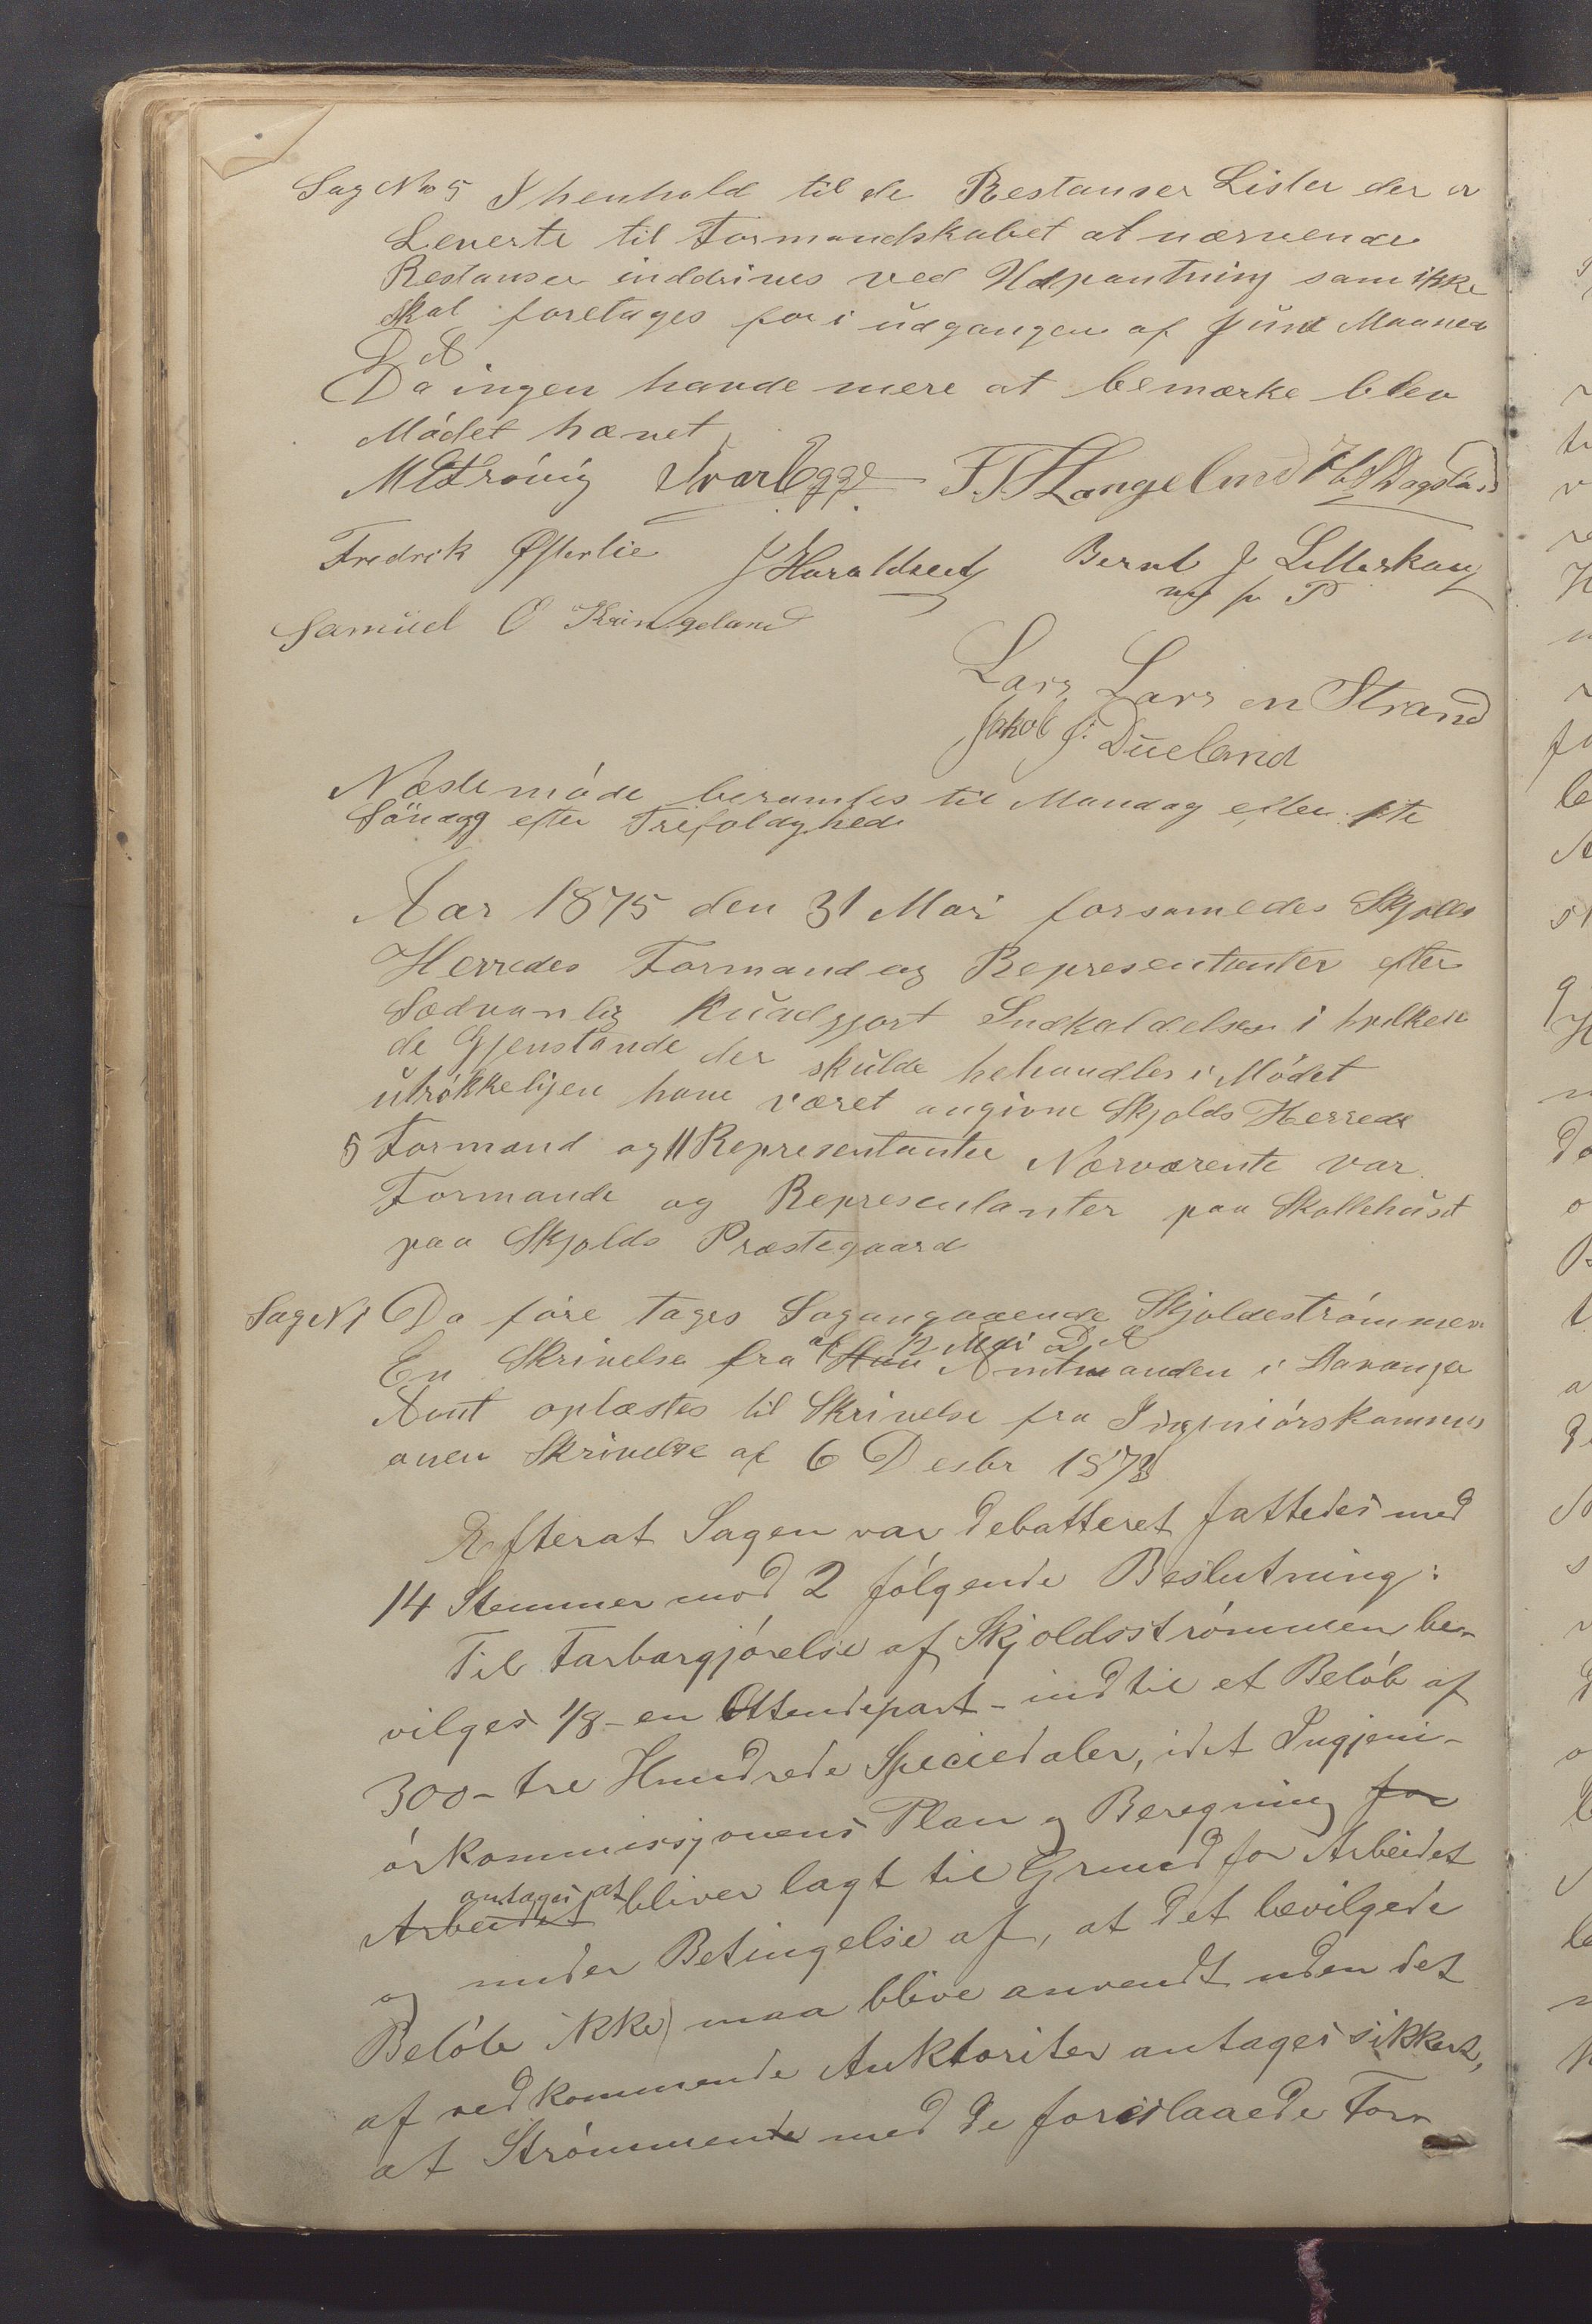 Sag No 5 I henhold til de Restanser Lister der er
Leverte til Formandskabet at nærvende
Restanser inddrives ved Udpantning som ikke
skal foretages for i udgangen af Juni Maaned
D A
Da ingen havde mere at bemærke blev
Mödet hævet
Ivar Egge F. T. Langeland
Fredrik Østerlie J Haraldseid Bernt J Litleskog
m f P
Samuel O Kringeland
Lars Lars en Strand
Jakob J. Dueland
Næste möde beramtes til Mandag efter 1te
Sönagg efter Trefoldaghed
Aar 1875 den 31 Mai forsamledes Skjolds
Herredes Formand og Representienter efter
Sædvanlig Kundgjort Indkaldelsen i hvilken
de Gjenstande der skulde behandles i Mödet
utrökkeligen have været angivne Skjolds Herrede
5 Formand og 11 Representanter Nærværente var
Formande og Representanter paa Skollehuset
paa Skjolds Præstegaard
Sag N 1 Da fore tages Sagangaaende Skjoldeströmmen
af 12 Mai D A
En Skrivelse fra Amtmanden i Stavanger
Amt oplæstes til Skrivelse fra Ingeniörskommis
onen Skrivelse af 6 Desbr 1873
Efterat Sagen var debatteret fattedes med
14 Stemmer mod 2 fölgende Beslutning:
Til Farbargjörelse af Skjoldsströmmen be-
vilges 1/8 - en Ottendepart - indtil et Belöb af
300 - tre Hundrede Speciedaler, idet Ingjeni-
örkommissjonens Plan og Beregning for
antages at
Arbeidet bliver lagt til Grund for Arbeidet
og under Betingelse af, at det bevilgede
Belöb ikke maa blive anvendt uden det
af vedkommende Auktoriter antages sikkert,
at Strömmen med de foreslaaede For-